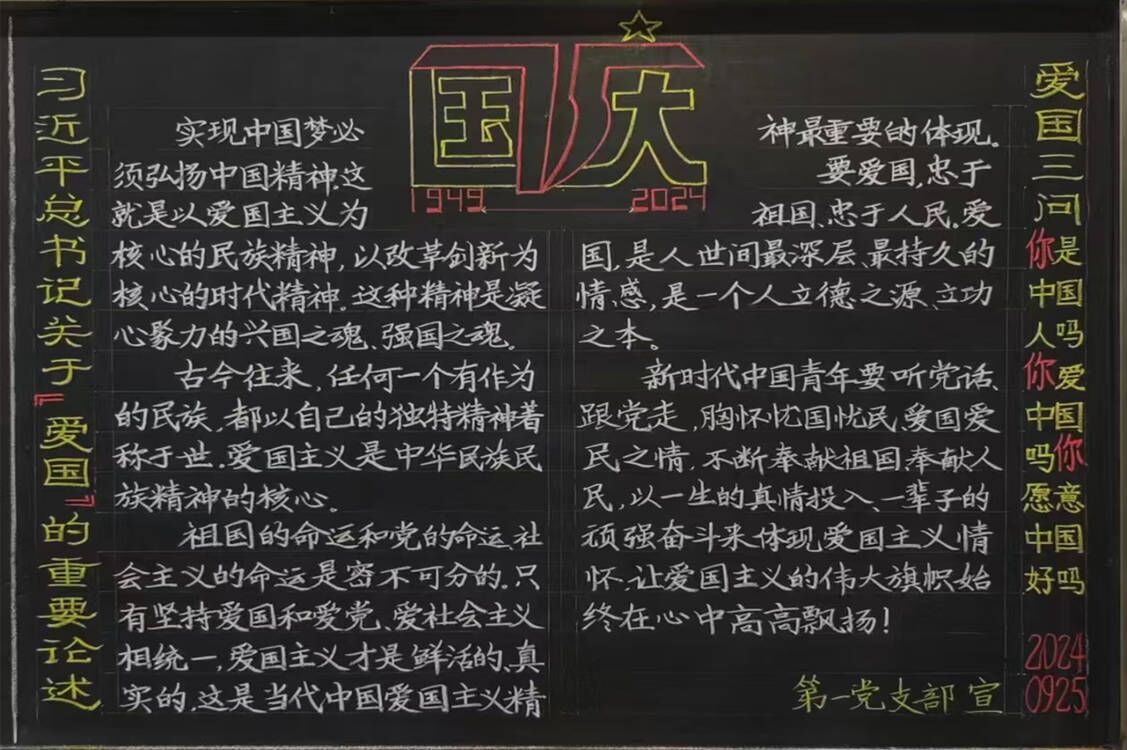 习近平总书记关于『爱国』的重要论述
国庆
1949
2024
实现中国梦必
须弘扬中国精神.这
就是以爱国主义为
核心的民族精神,以改革创新为
核心的时代精神.这种精神是凝
心聚力的兴国之魂、强国之魂。
古今往来,任何一个有作为
的民族,都以自己的独特精神着
称于世.爱国主义是中华民族民
族精神的核心。
祖国的命运和党的命运、社
会主义的命运是密不可分的.只
有坚持爱国和爱党、爱社会主义
相统一,爱国主义才是鲜活的、真
实的,这是当代中国爱国主义精
神最重要的体现。
要爱国,忠于
祖国、忠于人民.爱
国,是人世间最深层、最持久的
情感,是一个人立德之源、立功
之本。
新时代中国青年要听党话、
跟党走,胸怀忧国忧民、爱国爱
民之情,不断奉献祖国、奉献人
民,以一生的真情投入、一辈子的
顽强奋斗来体现爱国主义情
怀,让爱国主义的伟大旗帜始
终在心中高高飘扬!
第一党支部 宣
爱国三问
你是
中国
人吗
你爱
中国
吗你
愿意
中国
好吗
2024
0925